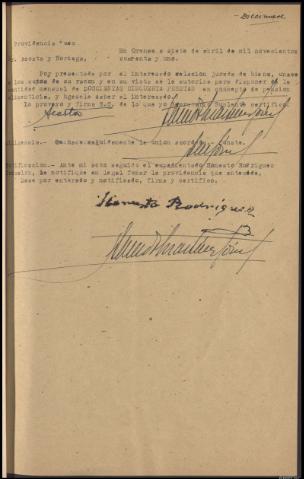 Providencia Juez
Sr. Acosta y Noriega.
En Orense a siete de abril de mil novecientos
cuarenta y uno.
Por presentada por el interesado relación jurada de bienes, unase
a los autos de su razon y en su vista se le autoriza para disponer de la
cantidad mensual de DOSCIENTAS CINCUENTA PESETAS en concepto de pension
alimenticia, y hagasele saber al interesado.
Lo proveyo y firma S.S. de lo que yo Secretario Suplente certifico.
Acosta
Diligencia.- Queda seguidamente la union acordada.
Notificacion.- Ante mi acto seguido el expedientado Ernesto Rodriguez
le notifique en legal forma la providencia que antecede.
Dase por enterado y notificado, firma y certifico.
Ernesto Rodriguez